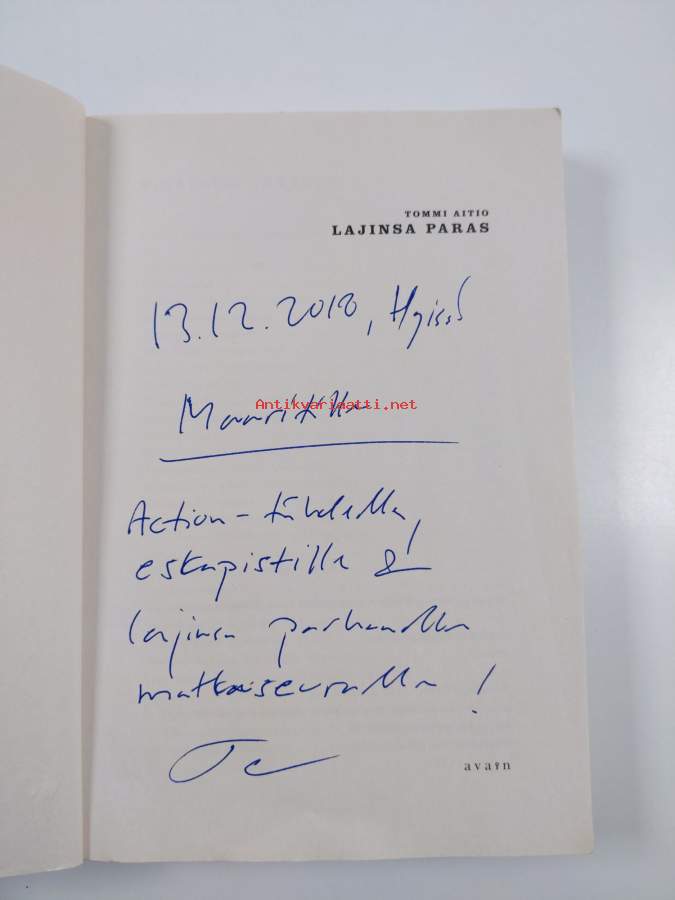 TOMMI AITIO
LAJINSA PARAS
13.12.2018, Hgissä
Antikvariaatti.net
Maaritille
Action-tähdelle,
eskapistille &
lajinsa parhaalle
matkaseuralle!
avain